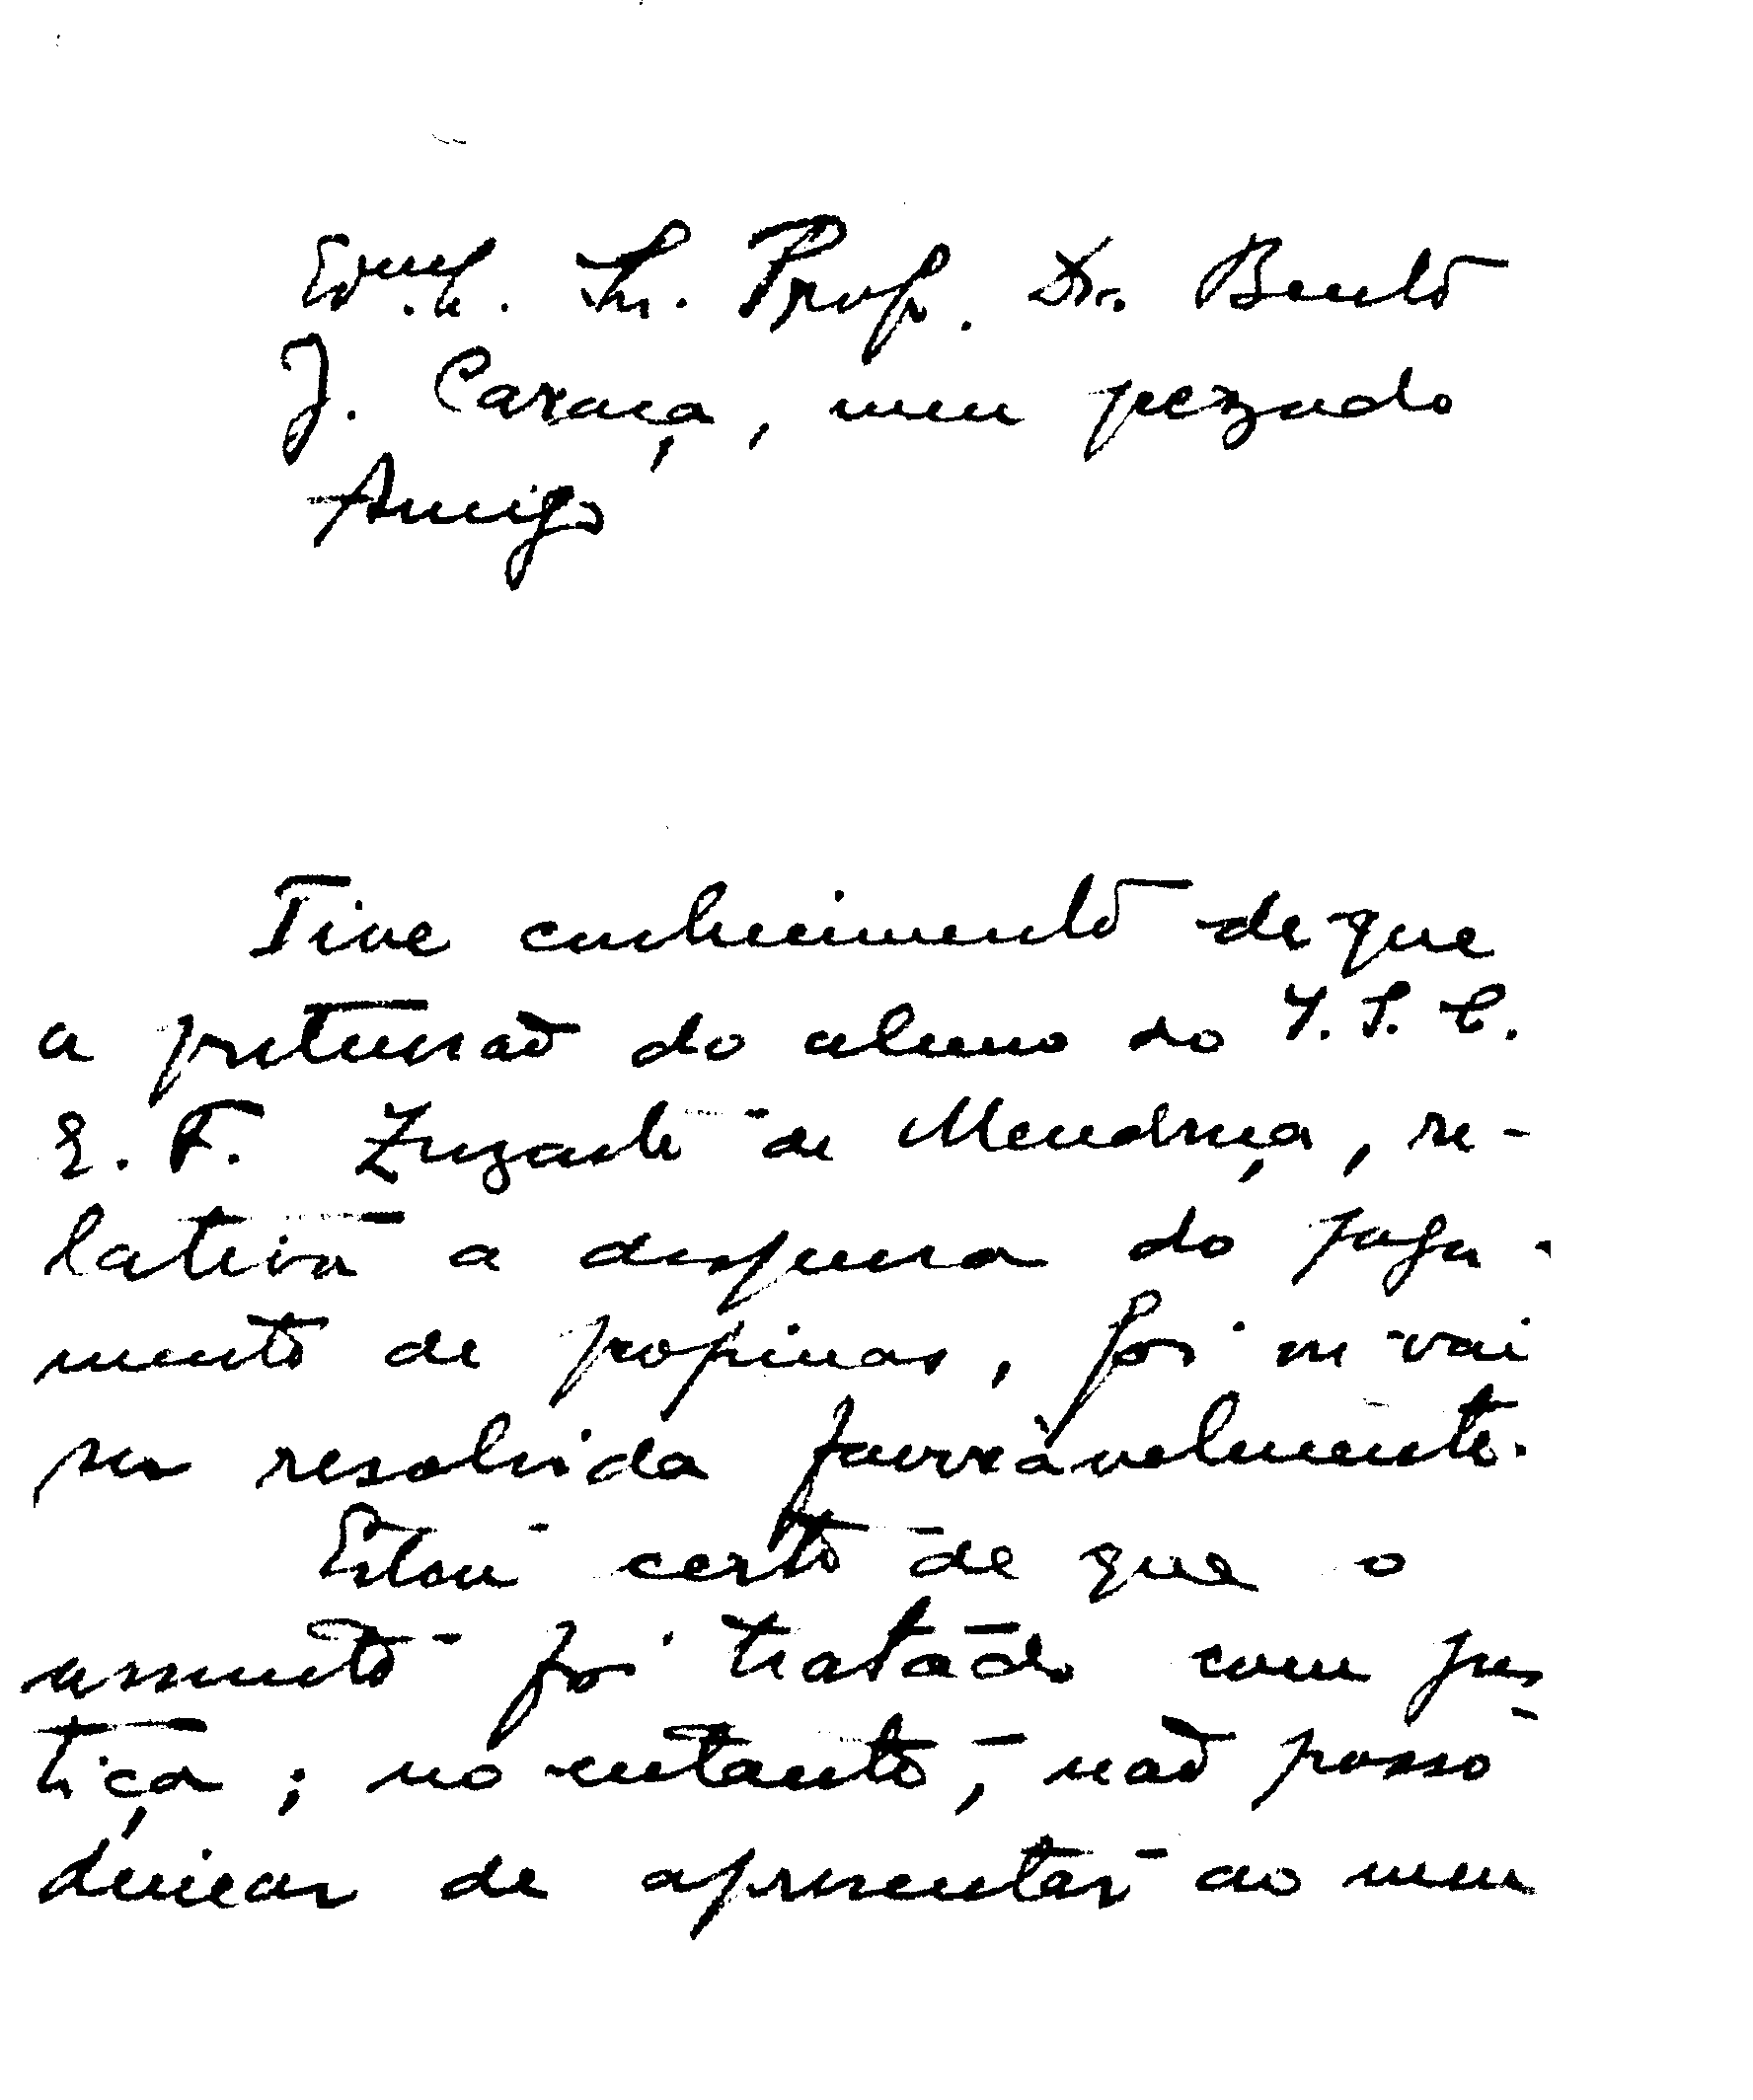 Exmº. Sr. Prof. Dr. Bento
J. Caraça, meu prezado
Amigo
Tive conhecimento de que
a pretensão do aluno do I. S. C.
E. F. Zuzarte de Mendonça, re-
lativa a dispensa do paga-
mento de propinas, foi ou vai
ser resolvida favoràvelmente.
Estou certo de que o
assunto foi tratado com jus
tiça; no entanto, não posso
deixar de apresentar ao meu